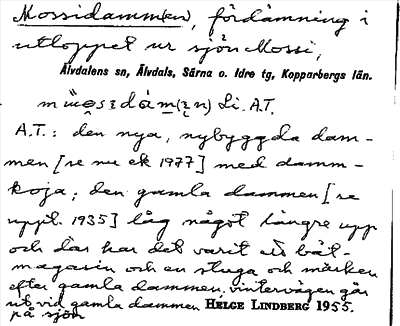 Mossidammen, fördämning i
utloppet ur sjön Mossi,
Älvdalens sn, Älvdals, Särna o. Idre tg, Kopparbergs län.
Li. A.T.
A.T.: den nya, nybyggda dam-
men [se nu ek 1977] med damm-
koja; den gamla dammen [se
uppt. 1935] låg något längre upp
och där har det varit ett båt-
magasin och en stuga och märken
efter gamla dammen, vintervägen går
ut vid gamla dammen HELGE LINDBERG 1955.
på sjön